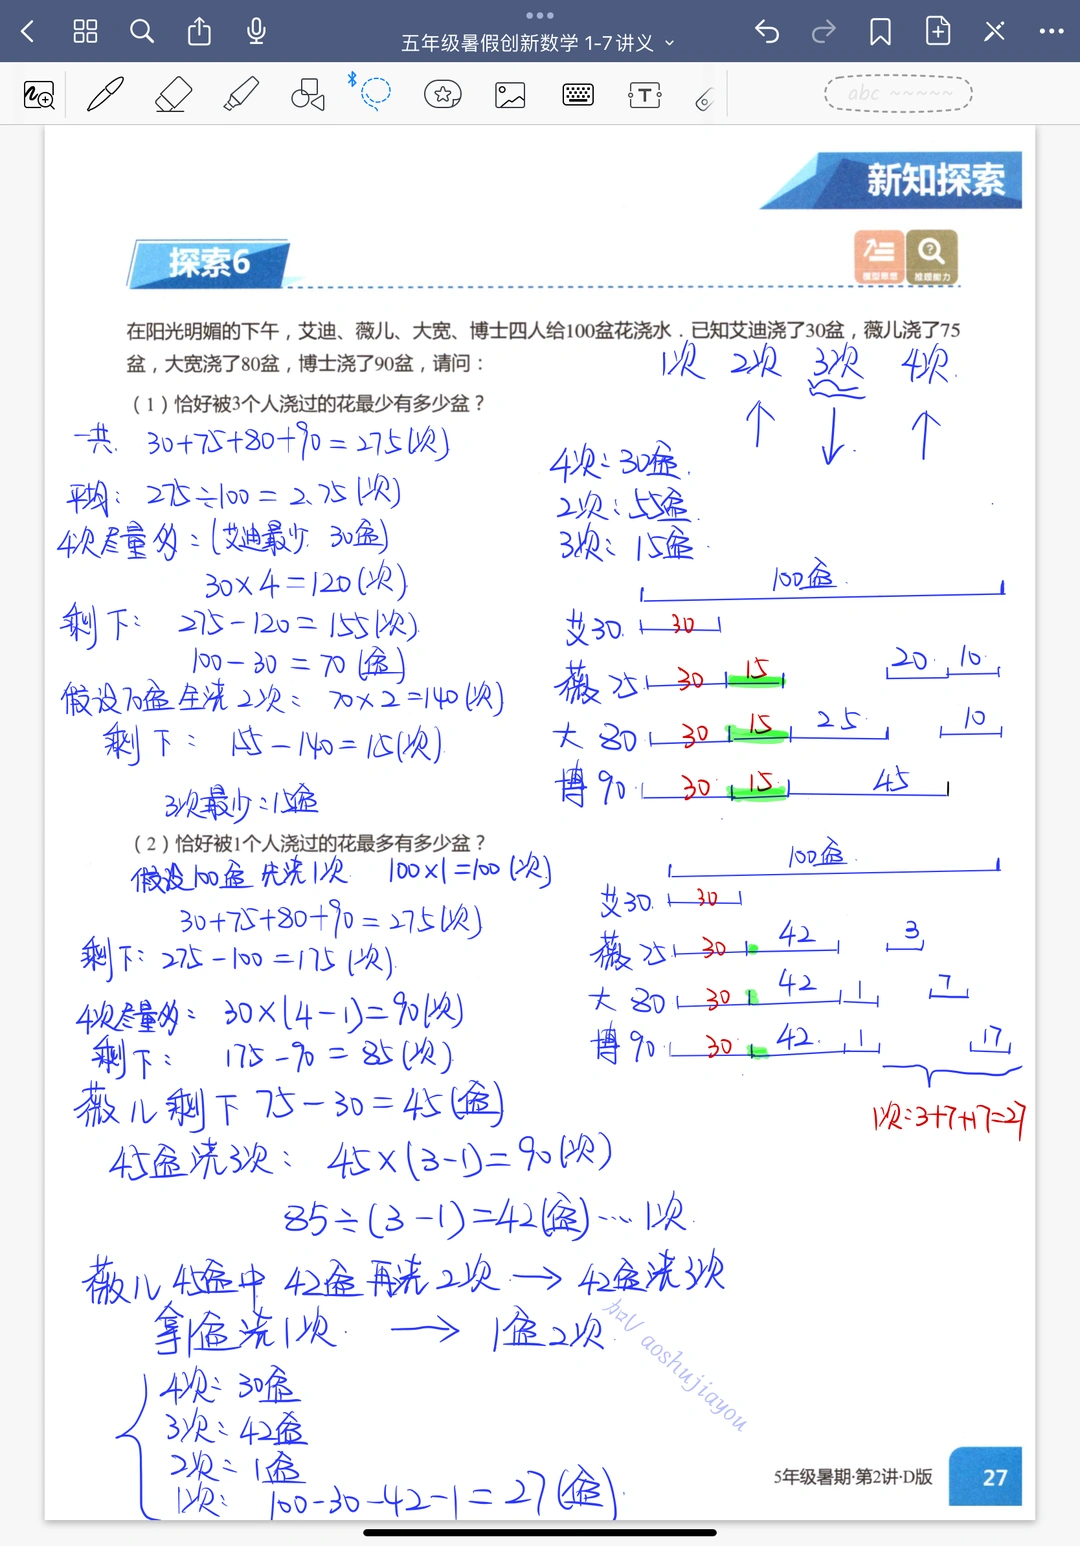 五年级暑假创新数学 1-7讲义
abc
新知探索
探索6
模型思想
推理能力
在阳光明媚的下午，艾迪、薇儿、大宽、博士四人给100盆花浇水．已知艾迪浇了30盆，薇儿浇了75
盆，大宽浇了80盆，博士浇了90盆，请问：
1次 2次 3次 4次
（1）恰好被3个人浇过的花最少有多少盆？
一共 30+75+80+90=275(次)
平均：275÷100=2.75(次)
4次尽量多：(艾迪最少 30盆)
30×4=120(次)
剩下：275-120=155(次)
100-30=70(盆)
假设70盆全浇2次：70×2=140(次)
剩下：155-140=15(次)
3次最少：15盆
4次：30盆
2次：55盆
3次：15盆
100盆
艾30 30
薇75 30 15 20 10
大80 30 15 25 10
博90 30 15 45
（2）恰好被1个人浇过的花最多有多少盆？
假设100盆先浇1次 100×1=100(次)
30+75+80+90=275(次)
剩下：275-100=175(次)
4次尽量多：30×(4-1)=90(次)
剩下：175-90=85(次)
薇儿剩下75-30=45(盆)
45盆浇3次：45×(3-1)=90(次)
85÷(3-1)=42(盆)…1次
薇儿45盆中42盆再浇2次→42盆浇3次
拿1盆浇1次→1盆2次
4次：30盆
3次：42盆
2次：1盆
1次：100-30-42-1=27(盆)
100盆
艾30 30
薇75 30 42 3
大80 30 42 1 7
博90 30 42 1 17
1次：3+7+17=27
加V aoshujiayou
5年级暑期·第2讲·D版
27